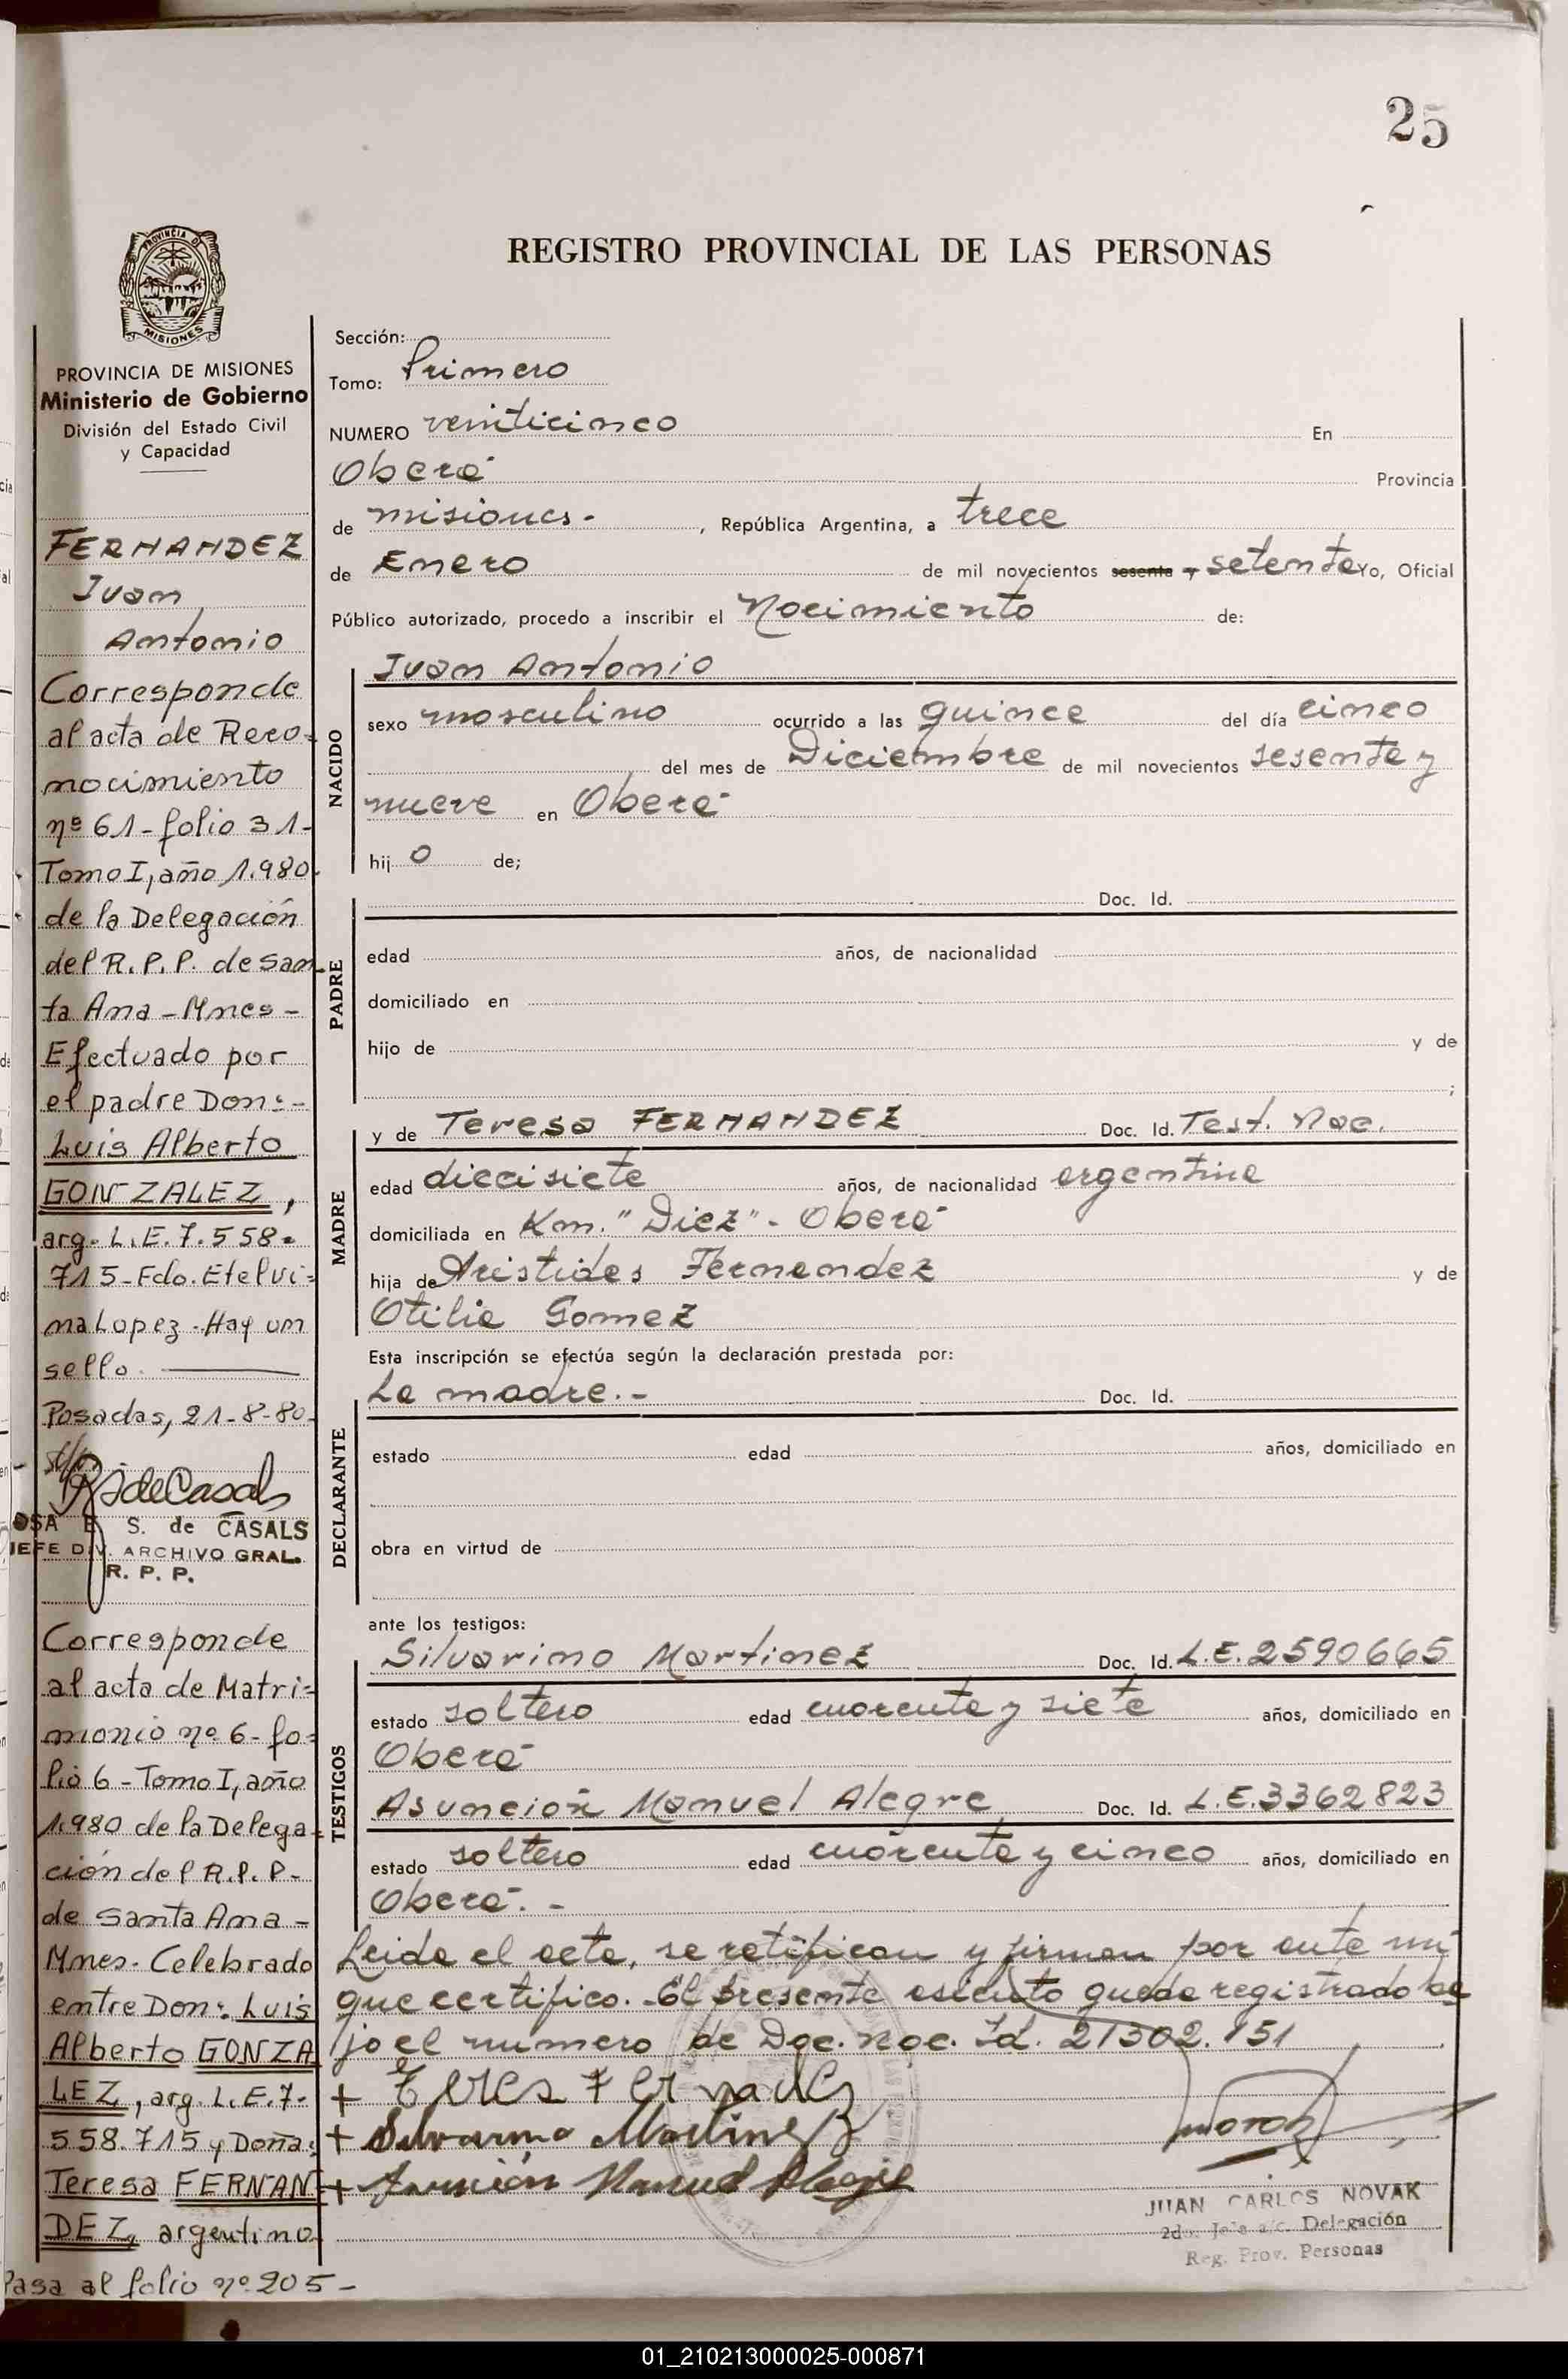 25
REGISTRO PROVINCIAL DE LAS PERSONAS
PROVINCIA DE
MISIONES
PROVINCIA DE MISIONES
Ministerio de Gobierno
División del Estado Civil
y Capacidad
FERNANDEZ
Juan
Antonio
Corresponde
al acta de Reco-
nocimiento
nº 61-folio 31-
Tomo I, año 1.980.
de la Delegación
del R.P.P. de San-
ta Ana - Mnes -
Efectuado por
el padre Don:-
Luis Alberto
GONZALEZ,
arg. L.E.7.558.
715-Fdo. Etelvi=
na Lopez - Hay un
sello.
Posadas, 21-8-80-
RSdeCasals
OSA E S. de CASALS
JEFE DIV. ARCHIVO GRAL.
R. P. P.
Corresponde
al acta de Matri=
monio nº 6- fo=
lio 6 - Tomo I, año
1.980 de la Delega-
ción del R.P.P-
de Santa Ana -
Mnes. Celebrado
entre Don: Luis
Alberto GONZA
LEZ, arg. L.E.7-
558.715 y Doña:
Teresa FERNAN=
DEZ, argentino.
Pasa al folio nº 205-
Sección:
Tomo: Primero
NUMERO veniticinco En
Oberá Provincia
de misiones.- , República Argentina, a trece
de Enero de mil novecientos sesenta y setenta Yo, Oficial
Público autorizado, procedo a inscribir el Nacimiento de:
NACIDO
Juan Antonio
sexo masculino ocurrido a las quince del día cinco
del mes de Diciembre de mil novecientos sesenta y
nueve en Oberá
hij o de;
PADRE
Doc. Id.
edad años, de nacionalidad
domiciliado en
hijo de y de
;
MADRE
y de Teresa FERNANDEZ Doc. Id. Test. Nac.
edad diecisiete años, de nacionalidad argentina
domiciliada en Km. "Diez" - Oberá
hija de Aristides Fernandez y de
Otilia Gomez
Esta inscripción se efectúa según la declaración prestada por:
DECLARANTE
La madre.- Doc. Id.
estado edad años, domiciliado en
obra en virtud de
ante los testigos:
TESTIGOS
Silvarino Martinez Doc. Id. L.E.2590665
estado soltero edad cuarenta y siete años, domiciliado en
Oberá
Asunción Manuel Alegre Doc. Id. L.E.3362823
estado soltero edad cuarenta y cinco años, domiciliado en
Oberá.-
Leida el acta, se ratifican y firman por ante mi
que certifico. El presente asiento queda registrado ba
jo el numero de Doc. nac. Id. 21302.151
+ Teresa Fernadez
+ Silvarino Martinez
+ Asunción Manuel Alegre
JUAN CARLOS NOVAK
2do. Jefe a/c. Delegación
Reg. Prov. Personas
01_210213000025-000871